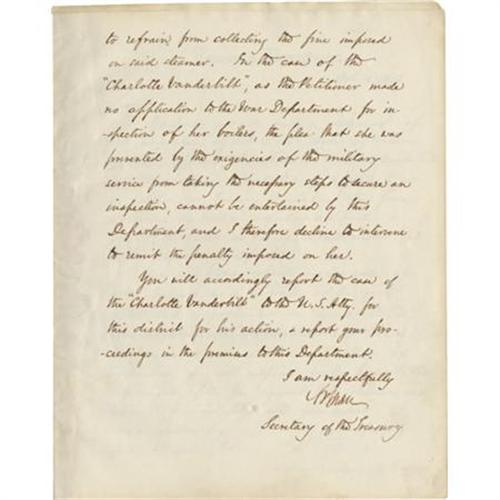 to refrain from collecting the fine imposed
on said steamer. In the case of the
"Charlotte Vanderbilt", as the Petitioner made
no application to the War Department for in-
-spection of her boilers, the plea that she was
prevented by the exigencies of the military
service from taking the necessary steps to secure an
inspection, cannot be entertained by this
Department, and I therefore decline to intervene
to remit the penalty imposed on her.
You will accordingly report the case of
the "Charlotte Vanderbilt" to the U. S. Atty. for
this district for his action, & report your pro-
-ceedings in the premises to this Department.
I am respectfully
Secretary of the Treasury